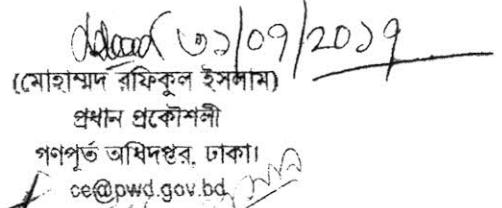 ৩১/০৭/২০১৭
(মোহাম্মদ রফিকুল ইসলাম)
প্রধান প্রকৌশলী
গণপূর্ত অধিদপ্তর, ঢাকা।
ce@pwd.gov.bd